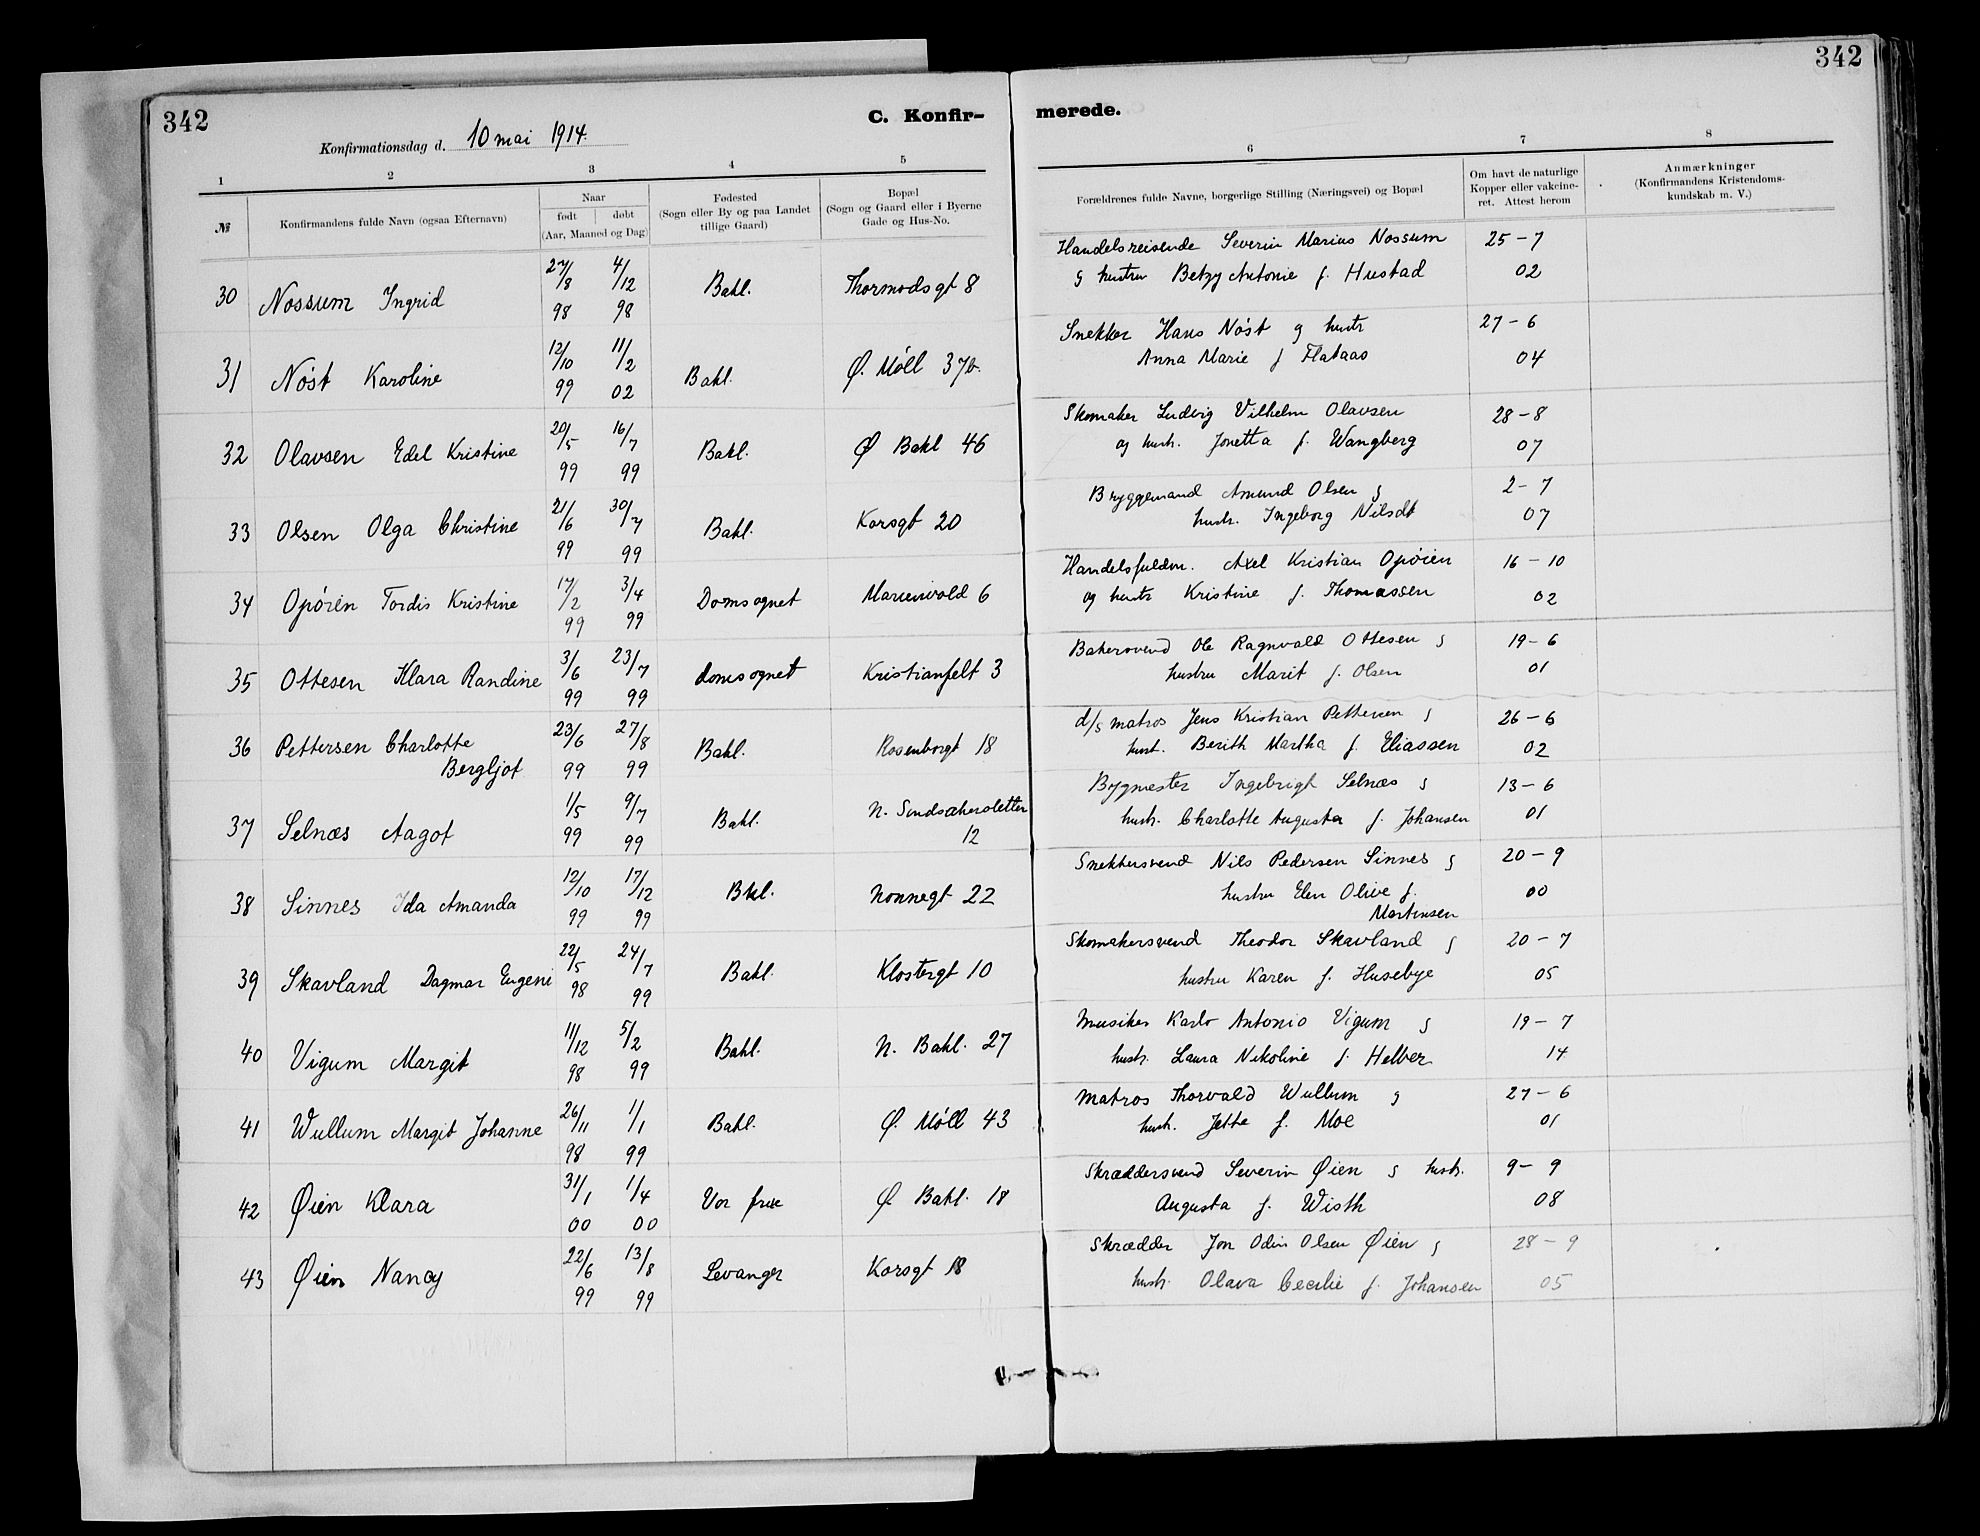 342
C. Konfir-
Konfirmationsdag d. 10 mai 1914.
1 2 3 4 5
№ Konfirmandens fulde Navn (ogsaa Efternavn) Naar født døbt (Aar, Maaned og Dag) Fødested (Sogn eller By og paa Landet tillige Gaard) Bopæl (Sogn og Gaard eller i Byerne Gade og Hus-No.
30 Nossum Ingrid 27/8 98 4/12 98 Bakl. Thormodsgt 8
31 Nøst Karoline 12/10 99 11/2 02 Bakl. Ø. Møll 37b.
32 Olavsen Edel Kristine 20/5 99 16/7 99 Bakl. Ø Bakl 46
33 Olsen Olga Christine 21/6 99 30/7 99 Bakl. Korsgt 20
34 Opøien Tordis Kristine 17/2 99 3/4 99 Domsognet Marienvold 6
35 Ottesen Klara Randine 3/6 99 23/7 99 domsognet Kristianfelt 3
36 Pettersen Charlotte
Bergljot 23/6 99 27/8 99 Bakl. Rosenborgt 18
37 Selnæs Aagot 1/5 99 9/7 99 Bakl. N. 12
38 Sinnes Ida Amanda 12/10 99 17/12 99 Bkl. Nonnegt 22
39 Skavland Dagmar Eugeni 22/5 98 24/7 99 Bakl. Klostergt 10
40 Vigum Margit 11/12 98 5/2 99 Bakl. N. Bakl. 27
41 Wullum Margit Johanne 26/11 98 1/1 99 Bakl. Ø. Møll 43
42 Øien Klara 31/1 00 1/4 00 Vor frue Ø Bakl. 18
43 Øien Nancy 22/6 99 13/8 99 Levanger Korsgt 18
342
merede.
6 7 8
Forældrenes fulde Navne, borgerlige Stilling (Næringsvei) og Bopæl
Om havt de naturlige Kopper eller vakcineret. Attest herom
Anmærkninger (Konfirmandens Kristendomskundskab m. V.)
Handelsreisende Severin Marius Nossum 25-7
g hustru Betzy Antonie f. Hustad 02
Snekker Hans Nøst g hustr 27-6
Anna Marie f Flataas 04
Skomaker Ludvig Vilhelm Olavsen 28-8
og hust. Jonetta f. Wangberg 07
Bryggemand Amund Olsen g 2-7
hustr. Ingeborg Nilsdt 07
Handelsfuldm. Axel Kristian Opøien 16-10
og hustr Kristine f. Thomassen 02
Bakersvend Ole Ragnvald Ottesen g 19-6
hustru Marit f. Olsen 01
d/s matros Jens Kristian Pettersen g 26-6
hust. Berith Martha f. Eliassen 02
Bygmester Ingebrigt Selnæs g 13-6
hustr. Charlotte Augusta f. Johansen 01
Snekkersvend Nils Pedersen Sinnes g 20-9
hustru Elen Olive f. 00
Martinsen
Skomakersvend Theodor Skavland g 20-7
hustru Karen f. Husebye 05
Musiker Karlo Antonio Vigum g 19-7
hustr. Laura Nikoline f. Helber 14
Matros Thorvald Wullum g 27-6
hustr. Jette f. Moe 01
Skræddersvend Severin Øien g hustr. 9-9
Augusta f. Wisth 08
Skrædder Jon Odin Olsen Øien g 28-9
hustr. Olava Cecilie f. Johansen 05